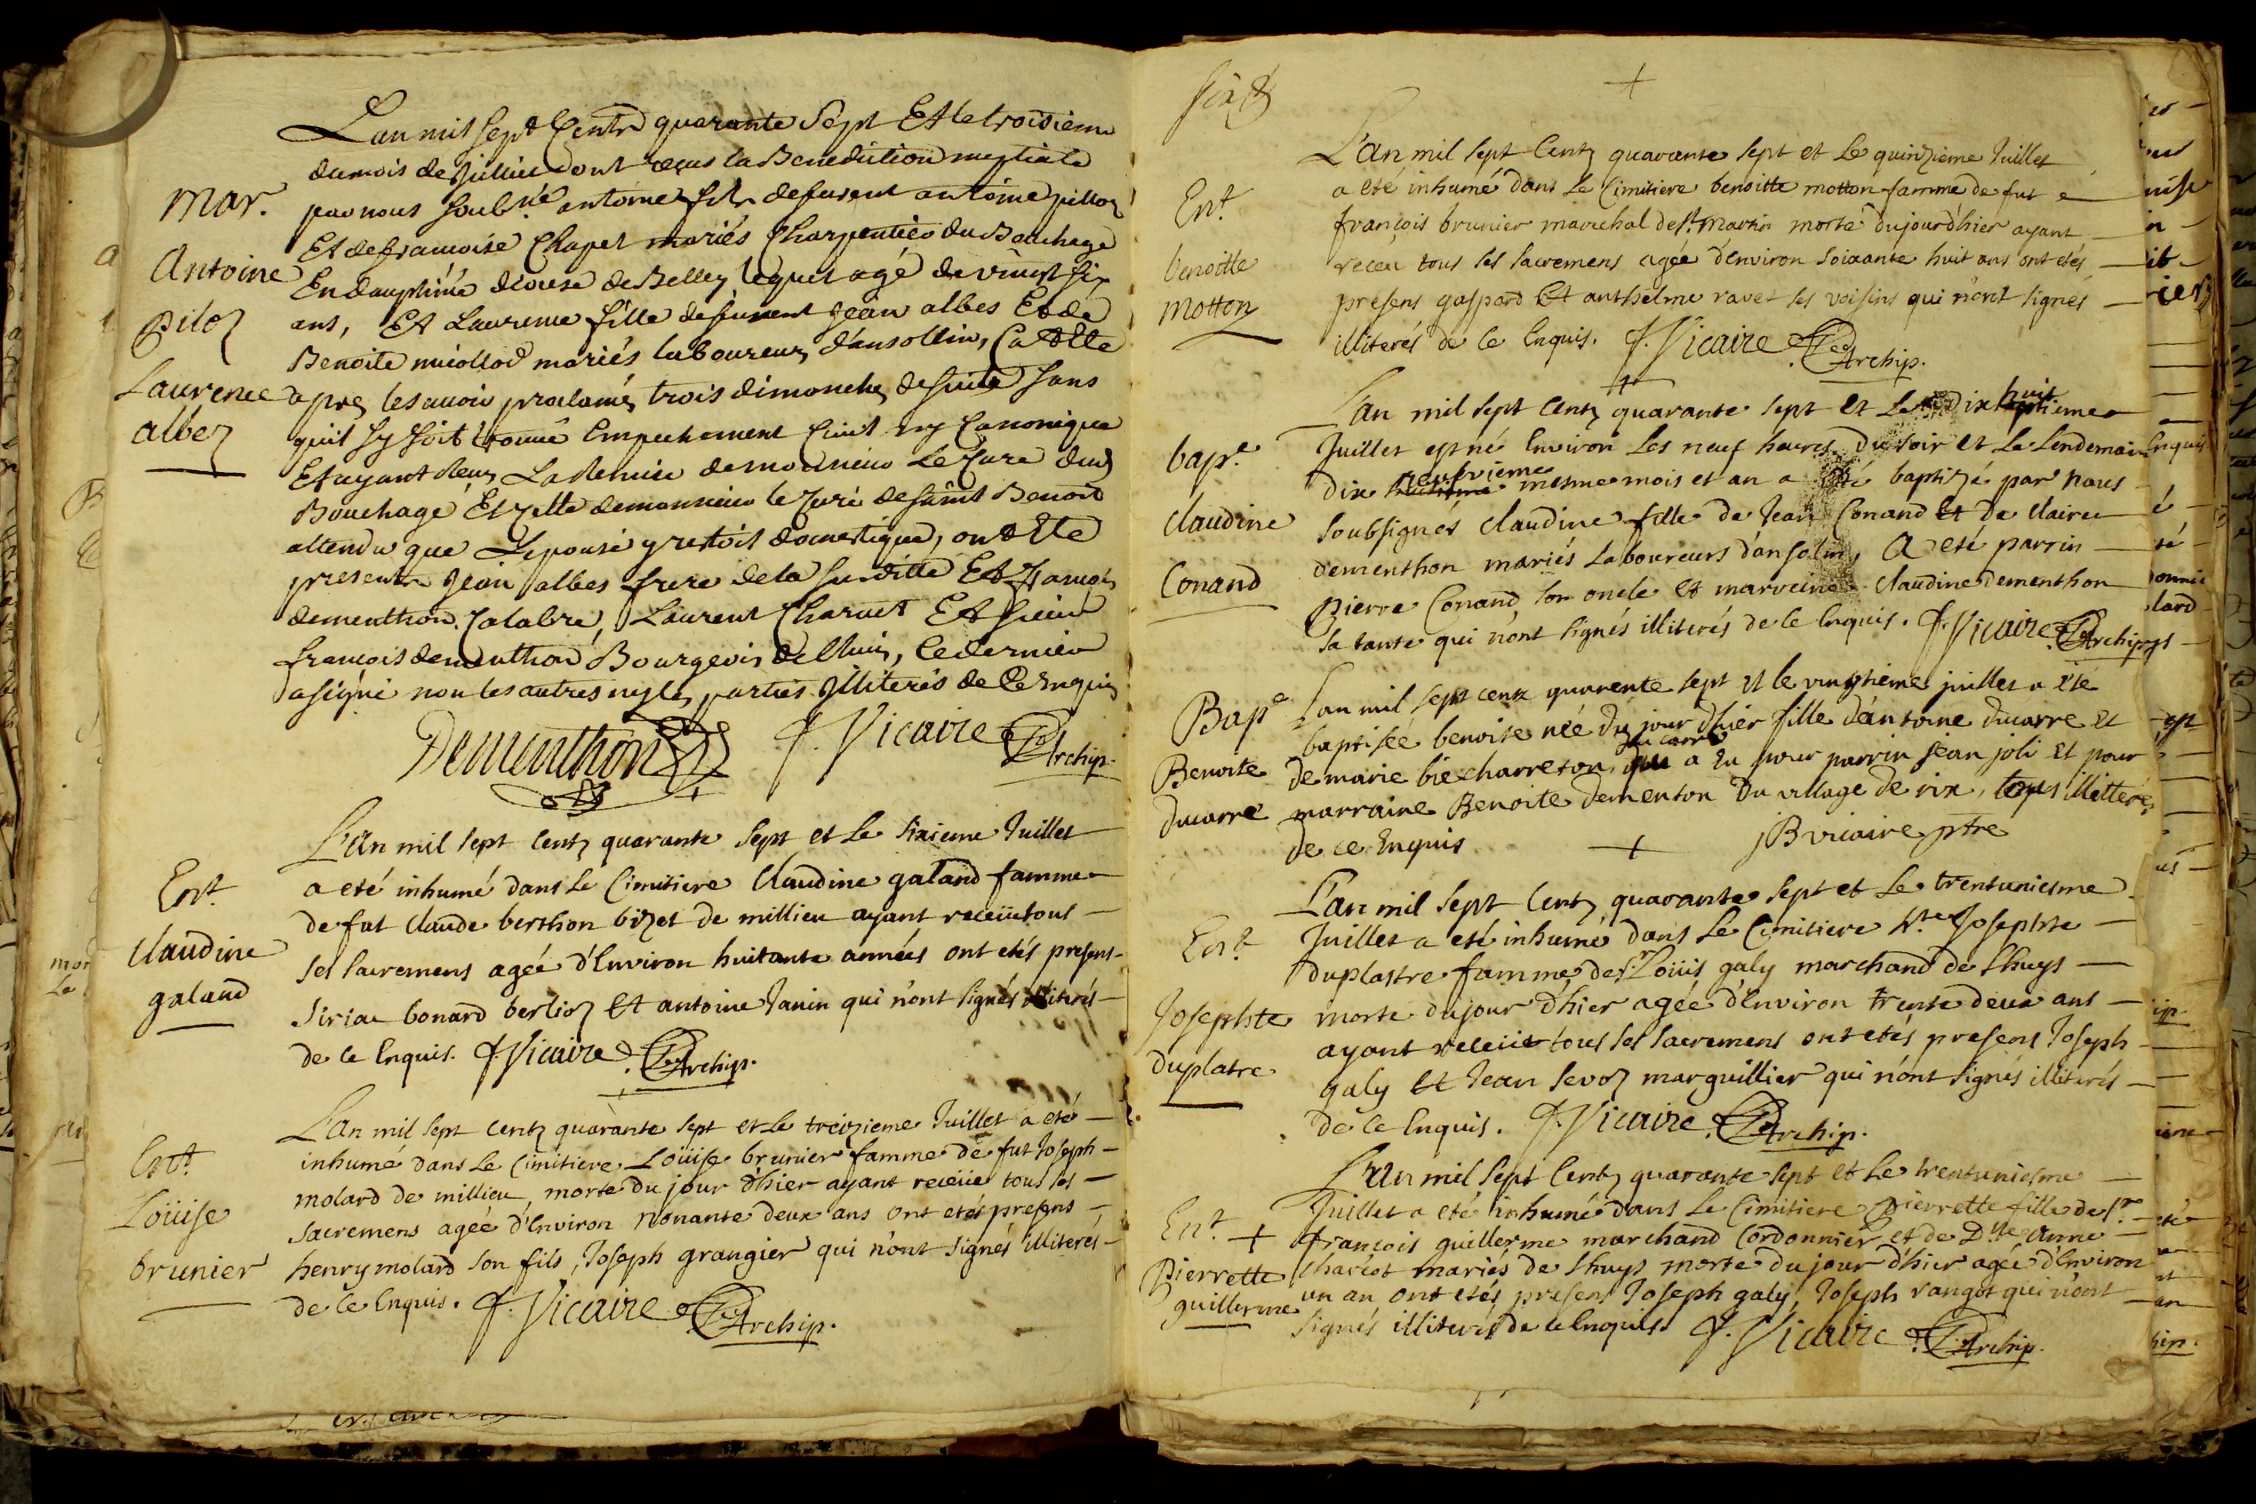 Mar.
Antoine
Piloz
Laurence
albez
L'an mil sept Centz quarante Sept Et le troisieme
du mois de Juillet ont reçus la Benediction nuptiale
par nous soubné antoine fils de furent antoine pilloz
Et de francoise Chapet mariés Charpentier du Bouchage
En dauphiné diocese de Belley lequel agé de vingt six
ans, Et Laurence fille de furent Jean albes Et de
Benoite micollod mariés laboureurs d'ansollin, Ca Ette
apres les avoir proclamés trois dimanches de suite sans
quil sy soit trouvé Empechement Civil ny Canonique
Et ayant Reus La Remise de monsieur Le Cure dud
Bouchage Et celle de monsieur le Curé de saint Benoit
attendu que L'epousé y restoit domestique, ont Ette
presents Jean albes frere de la suditte Et françois
dementhon Calabre, Laurent Charvet Et sieur
francois dementhon Bourgeois de Lhuis, Ce dernier
a signé non les autres ny les parties Illiterés de Ce Enquis
Dementhon J. Vicaire Archip.
Ent.
Claudine
galand
L'an mil sept Centz quarante Sept et Le Sixieme Juillet
a eté inhumé dans Le Cimitiere Claudine galand famme
de fut Claude berthon bizet de millieu ayant receüe tous
ses sacremens agée d'Environ huitante années ont etés presens
Siriac bonard berlioz Et antoine Janin qui n'ont signés illiterés
de ce Enquis. J. Vicaire Archip.
Ent.
Loüise
brunier
L'An mil sept Centz quarante sept et Le treizieme Juillet a eté
inhumé dans Le Cimitiere Loüise brunier famme de fut Joseph
molard de millieu, morte du jour d'hier ayant receüe tous ses
sacremens agée d'Environ Nonante deux ans ont etés presens
henry molard son fils, Joseph grangier qui n'ont signés illiterés
de ce Enquis. J. Vicaire Archip.
Ent.
benoitte
Motton
L'an mil sept Centz quarante sept et Le quinzieme Juillet
a eté inhumé dans Le Cimitiere benoitte motton famme de fut
françois brunier marechal de st. Martin morte du jourd'hier ayant
receu tous ses sacremens agée d'Environ soixante huit ans ont etés
presens gaspard Et anthelme ravet ses voisins qui n'ont signés
illiterés de ce Enquis. J. Vicaire Archip.
bapt.
Claudine
Conand
L'an mil sept Centz quarante sept et Le dix huitieme
Juillet est né Environ Les neuf heures du soir et Le Lendemain
dix neufvieme mesme mois et an a eté baptizé par nous
soubsignés Claudine fille de Jean Conand Et de Claire
dementhon mariés Laboureurs d'ansolin, A eté parrin
Pierre Conand son oncle Et marreine Claudine dementhon
sa tante qui n'ont signés illiterés de ce Enquis. J. Vicaire Archip.
Bape
Benoite
ducarre
L'an mil sept cent quarente sept et le vingtieme juillet a été
baptisée benoite née du jour d'hier fille d'antoine ducarre et
de marie bié charreton ducarre a eu pour parrin jean joli et pour
marraine Benoite dementon du village de rix, tous illitterés
de ce Enquis jB vicaire ptre
Ent.
Josephte
duplatre
L'an mil sept Centz quarante sept et Le trentuniesme
Juillet a eté inhumé dans Le Cimitiere Josephte
duplastre famme de sr. Loüis galy marchand de Lhuys
morte du jour d'hier agée d'Environ trente deux ans
ayant receüe tous ses sacremens ont etés presens Joseph
galy Et Jean sevoz marguillier qui n'ont signés illiterés
de ce Enquis. J. Vicaire Archip.
Ent. +
Pierrette
guillerme
L'an mil sept Centz quarante sept et Le trentuniesme
Juillet a eté inhumé dans Le Cimitiere Pierrette fille de sr.
françois guillerme marchand Cordonnier et de Dlle Anne
chariot mariés de Lhuys morte du jour d'hier agée d'Environ
un an ont etés presens Joseph galy, Joseph rangot qui n'ont
signés illiterés de ce Enquis. J. Vicaire Archip.